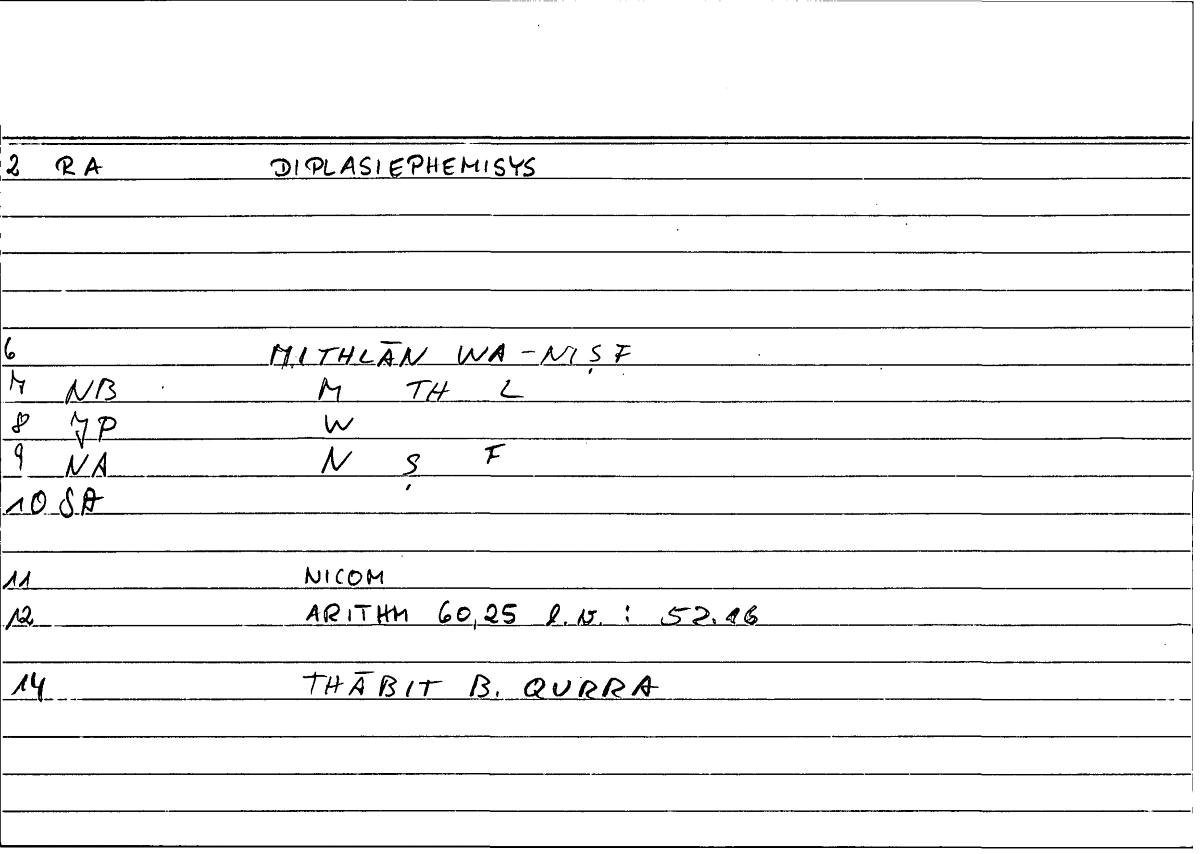 2 RA DIPLASIEPHEMISYS
6 MITHLĀN WA-NIṢF
7 NB M TH L
8 JP W
9 NA N Ṣ F
10 SA
11 NICOM
12 ARITHM 60,25 l.N. : 52.16
14 THĀBIT B. QURRA